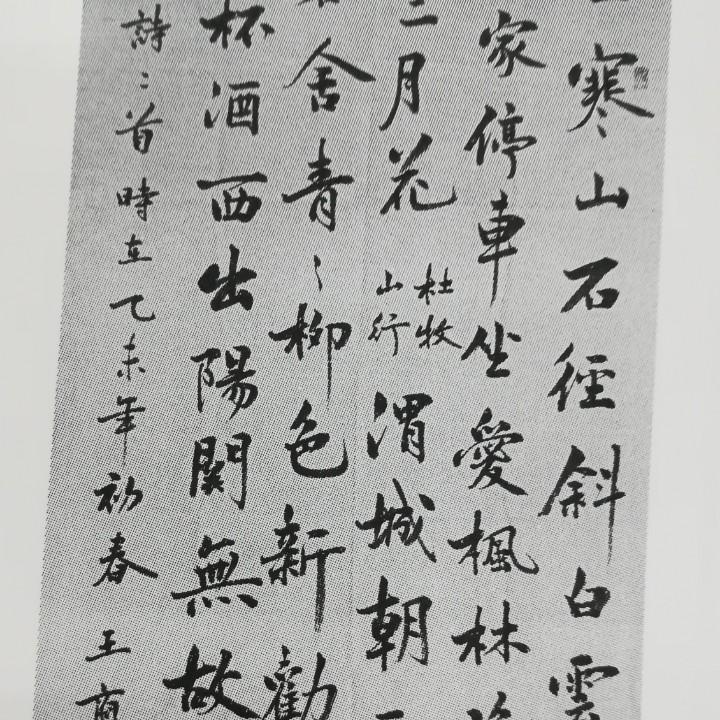 寒山石徑斜白雲
家停車坐愛楓林
二月花
杜牧
山行
渭城朝
舍青〻柳色新勸
杯酒西出陽關無故
詩二首時在乙未年初春 王